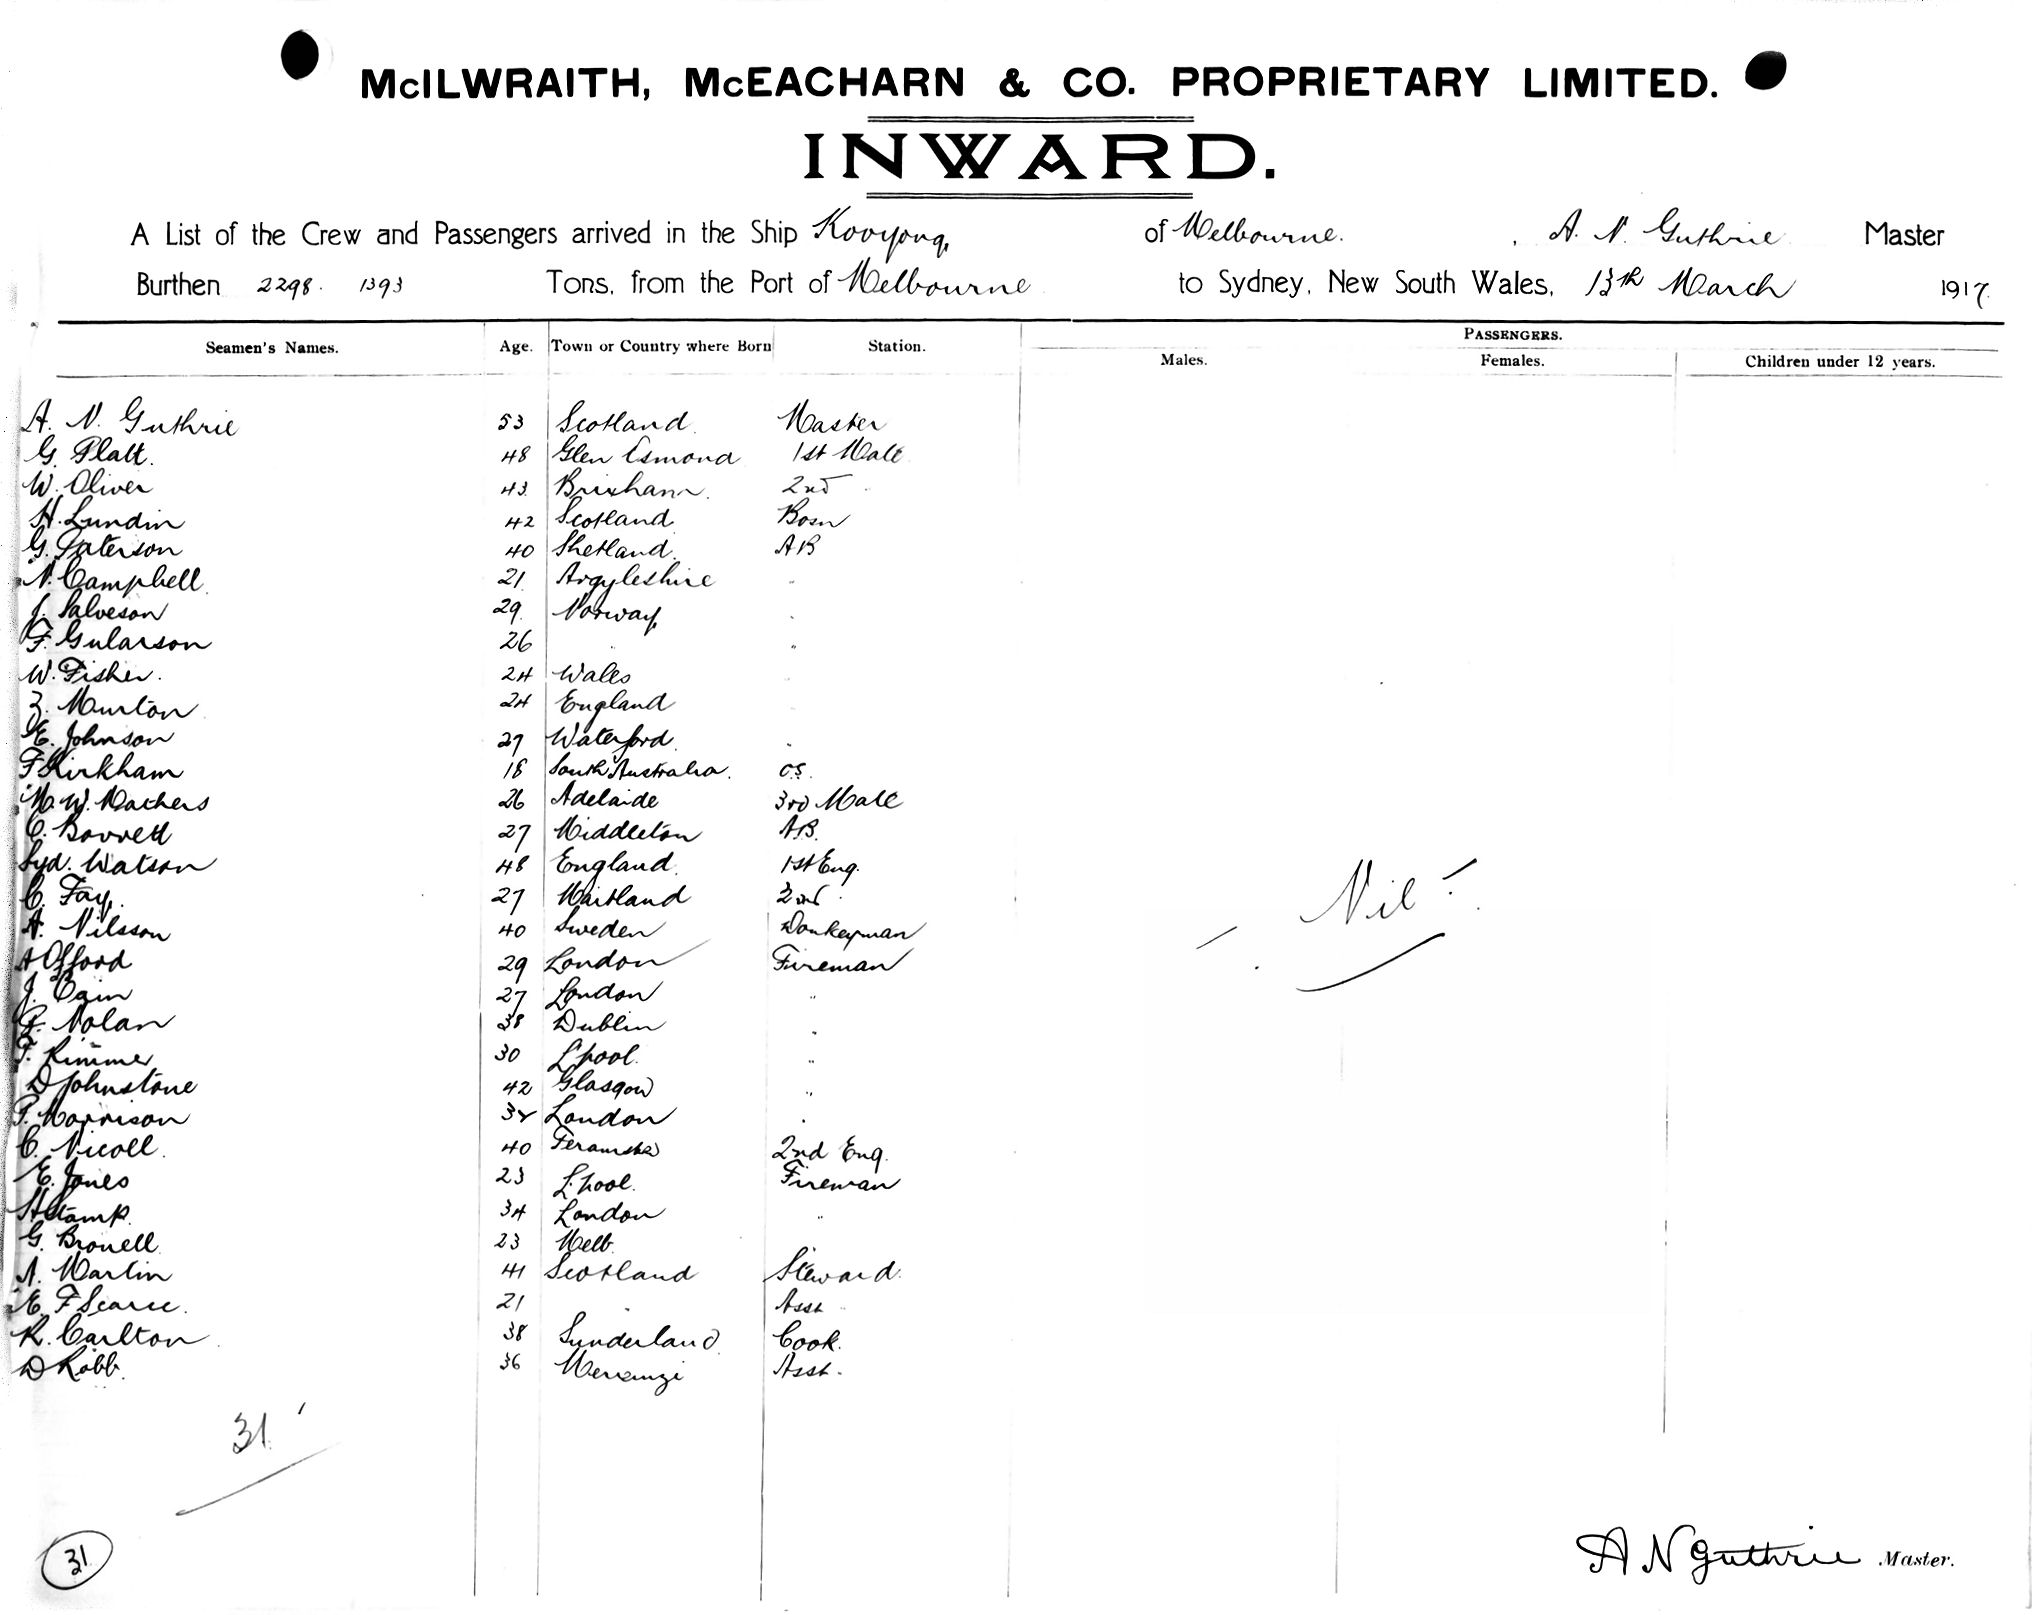 McILWRAITH, McEACHARN & CO. PROPRIETARY LIMITED.
INWARD.
A List of the Crew and Passengers arrived in the Ship Kooyong, of Melbourne. , A. N. Guthrie Master
Burthen 2298. 1393 Tons, from the Port of Melbourne to Sydney, New South Wales, 13th March 1917.
Seamen's Names. Age. Town or Country where Born Station. PASSENGERS.
Males. Females. Children under 12 years.
A. N. Guthrie 53 Scotland. Master
G. Platt. 48 Glen Esmond 1st Mate
W. Oliver 43. Brixham. 2nd
H. Lundin 42 Scotland Bosn
G. Paterson 40 Shetland. AB
N. Campbell 21 Argyleshire "
J. Salveson 29. Norway, "
F. Gularson 26 " "
W. Fisher. 24 Wales
Z. Murton 24 England
E. Johnson 27 Waterford. "
F Kirkham 18 South Australia. OS.
M. W. Mathers 26 Adelaide 3rd Mate
C. Barrett 27 Middleton AB.
Syd. Watson 48 England. 1st Eng.
C. Fay. 27 Maitland 3rd
A. Nilsson 40 Sweden Donkeyman
A Offord 29 London Fireman
J. Egin 27 London "
P. Nolan 38 Dublin "
T. Rimmer 30 L'pool. "
D Johnstone 42 Glasgow "
P. Morrison 34 London "
C. Nicoll. 40 2nd Eng.
E. Jones 23 L'pool. Fireman
H Stamp. 34 London "
G. Bronell 23 Melb.
A. Martin 41 Scotland Steward.
E. F Searce. 21 " Asst
R. Carlton 38 Sunderland Cook.
D Robb. 36 Asst.
- Nil -
31
31
A N Guthrie Master.